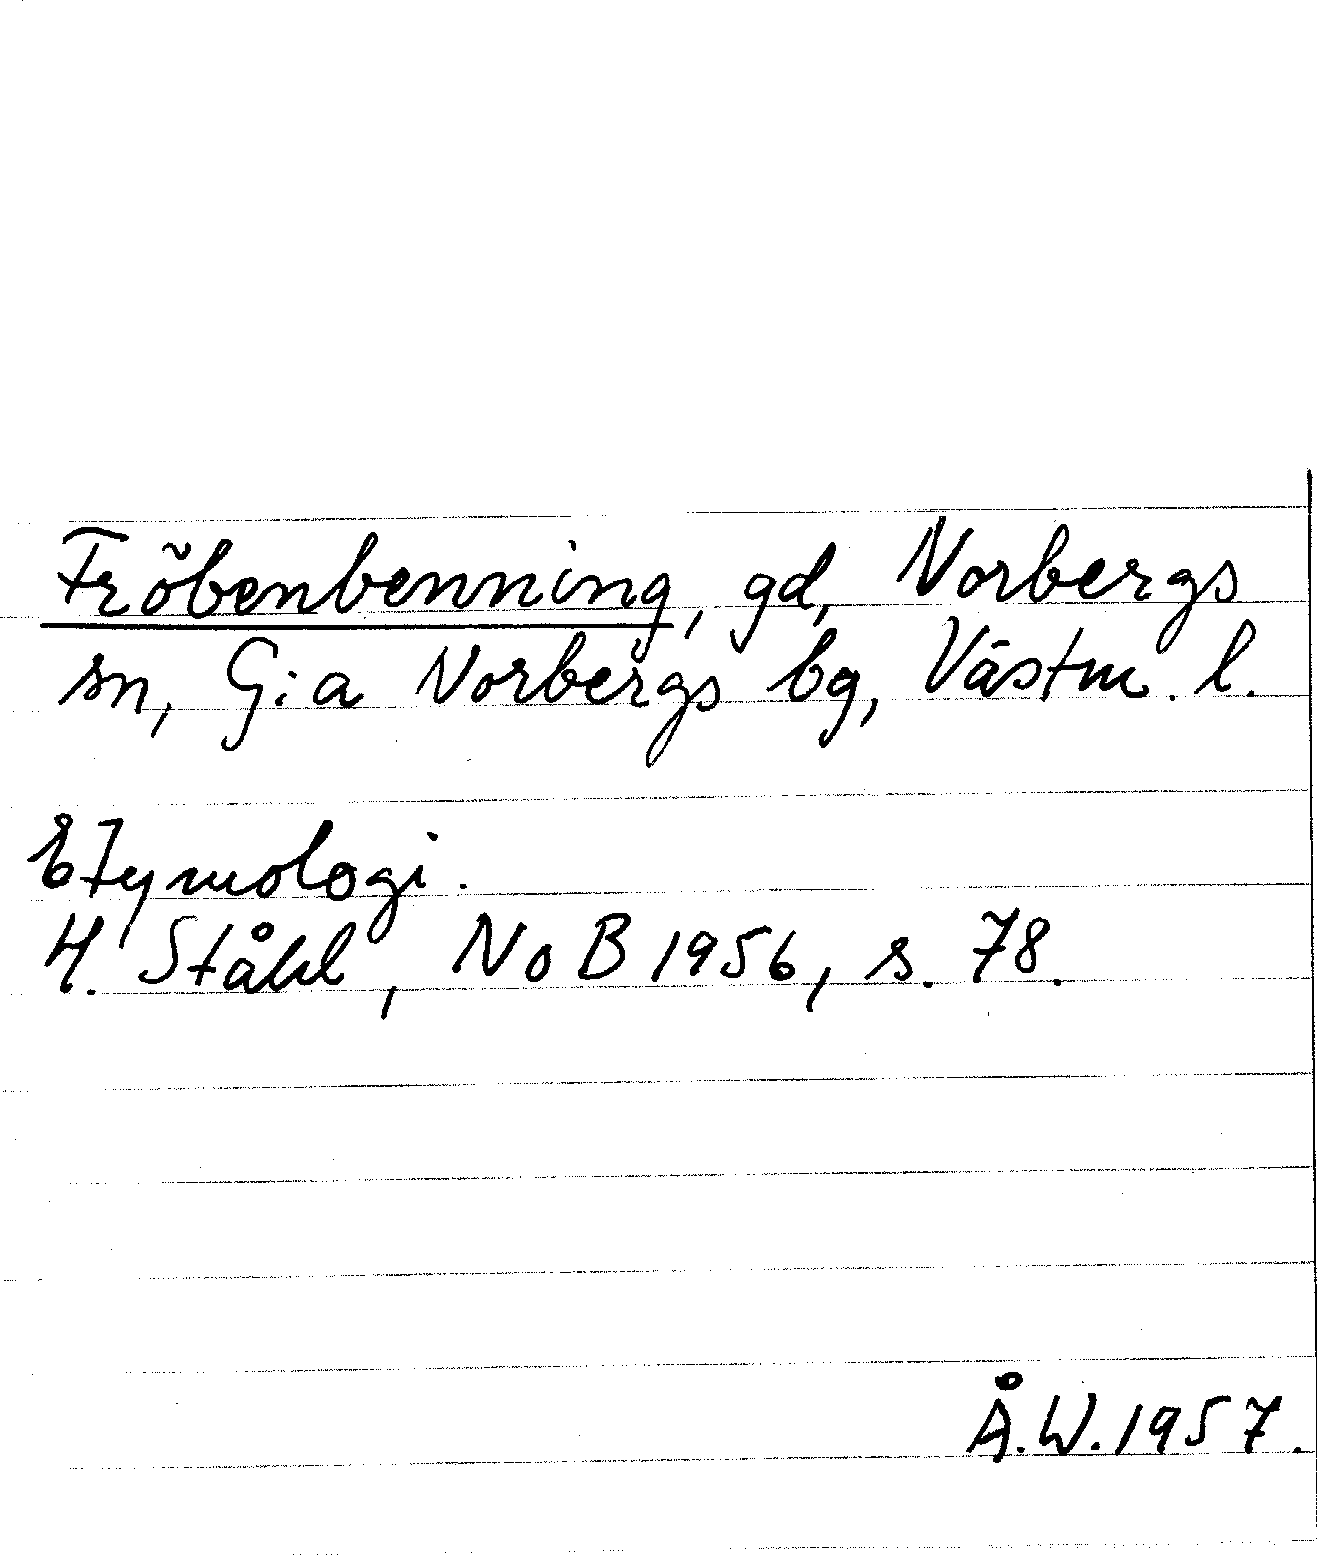 Fröbenbenning, gd, Norbergs
sn, G:a Norbergs bg, Västm. l.
Etymologi.
H. Ståhl, NoB 1956, s. 78.
Å.W. 1957.